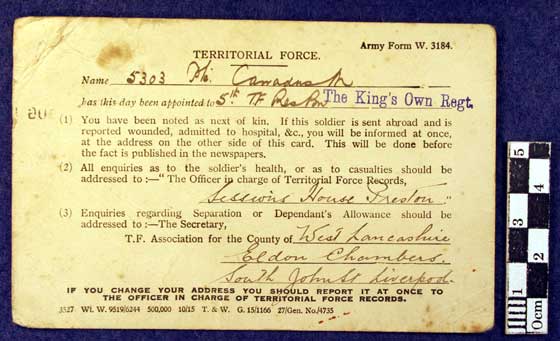 Army Form W. 3184.
TERRITORIAL FORCE.
Name 5303 M.
has this day been appointed to 5th TF Res Bn The King's Own Regt.
(1) You have been noted as next of kin. If this soldier is sent abroad and is
reported wounded, admitted to hospital, &c., you will be informed at once,
at the address on the other side of this card. This will be done before
the fact is published in the newspapers.
(2) All enquiries as to the soldier's health, or as to casualties should be
addressed to :—" The Officer in charge of Territorial Force Records,
Sessions House Preston "
(3) Enquiries regarding Separation or Dependant's Allowance should be
addressed to :—The Secretary,
T.F. Association for the County of West Lancashire
Eldon Chambers,
South John St Liverpool.
IF YOU CHANGE YOUR ADDRESS YOU SHOULD REPORT IT AT ONCE TO
THE OFFICER IN CHARGE OF TERRITORIAL FORCE RECORDS.
3527 Wt. W. 9519/6244 500,000 10/15 T. & W. G. 15/1166 27/Gen. No./4735
5
4
3
2
1
0cm